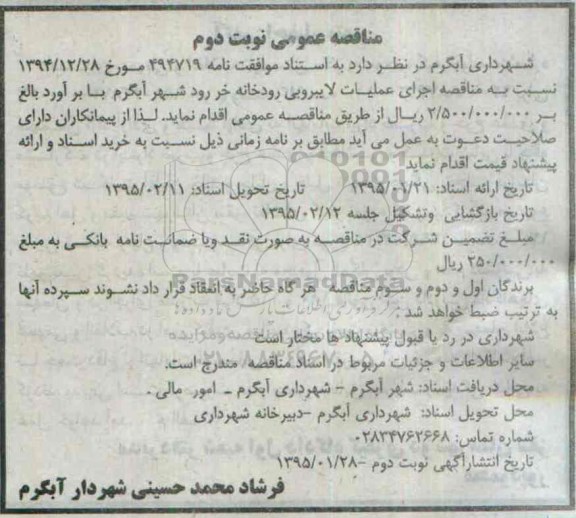 مناقصه عمومی نوبت دوم
شهرداری آبگرم در نظر دارد به استناد موافقت نامه ۴۹۴۷۱۹ مورخ ۱۳۹۴/۱۲/۲۸
نسبت به مناقصه اجرای عملیات لایروبی رودخانه خر رود شهر آبگرم با بر آورد بالغ
بر ۲/۵۰۰/۰۰۰/۰۰۰ ریال از طریق مناقصه عمومی اقدام نماید. لذا از پیمانکاران دارای
صلاحیت دعوت به عمل می آید مطابق بر نامه زمانی ذیل نسبت به خرید اسناد و ارائه
پیشنهاد قیمت اقدام نماید
تاریخ ارائه اسناد: ۱۳۹۵/۰۱/۲۱ تاریخ تحویل اسناد: ۱۳۹۵/۰۲/۱۱
تاریخ بازگشایی وتشکیل جلسه ۱۳۹۵/۰۲/۱۲
مبلغ تضمین شرکت در مناقصه به صورت نقد ویا ضمانت نامه بانکی به مبلغ
۲۵۰/۰۰۰/۰۰۰ ریال
ParsNamadData
برندگان اول و دوم و سوم مناقصه هر گاه حاضر به انعقاد قرار داد نشوند سپرده آنها
به ترتیب ضبط خواهد شد
شهرداری در رد یا قبول پیشنهاد ها مختار است
سایر اطلاعات و جزئیات مربوط در اسناد مناقصه مندرج است.
محل دریافت اسناد: شهر آبگرم – شهرداری آبگرم – امور مالی .
محل تحویل اسناد: شهرداری آبگرم –دبیرخانه شهرداری
شماره تماس: ۰۲۸۳۴۷۶۲۶۶۸
تاریخ انتشارآگهی نوبت دوم –۱۳۹۵/۰۱/۲۸
فرشاد محمد حسینی شهردار آبگرم